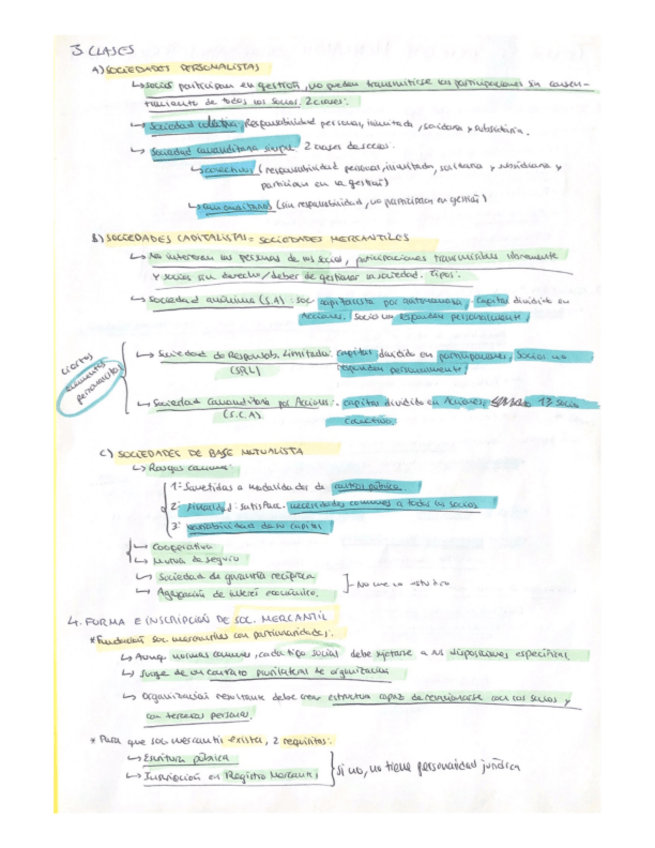 3. CLASES
A) SOCIEDADES PERSONALISTAS
↳ socios participan en gestión, no pueden transmitirse las participaciones sin consen-
timiento de todos los socios. 2 clases:
↳ Sociedad colectiva, Responsabilidad personal, ilimitada, solidaria y subsidiaria.
↳ Sociedad comanditaria simple. 2 clases de socios.
↳ colectivos (responsabilidad personal, ilimitada, solidaria y subsidiaria y
participan en la gestión)
↳ comanditarios (sin responsabilidad, no participan en gestión)
B) SOCIEDADES CAPITALISTAS = SOCIEDADES MERCANTILES
↳ No interesan las personas de los socios, participaciones transmisibles libremente
y socios sin derecho/deber de gestionar la sociedad. Tipos:
↳ Sociedad anónima (S.A): soc. capitalista por antonomasia. Capital dividido en
Acciones. Socio no responden personalmente
ciertos elementos personalistas
↳ Sociedad de Responsab. Limitada: capital dividido en participaciones, socios no
(SRL) responden personalmente
↳ Sociedad Comanditaria por Acciones: capital dividido en Acciones, 1 socio
(S.C.A) colectivo.
C) SOCIEDADES DE BASE MUTUALISTA
↳ Rasgos comunes:
1º Sometidas a modalidades de
2º finalidad: satisfacc. necesidades comunes a todos los socios
3º variabilidad de su capital
↳ Cooperativa
↳ Mutua de seguro
↳ Sociedad de garantía recíproca
↳ Agrupación de interés económico.
- No
4. FORMA E INSCRIPCIÓN DE SOC. MERCANTIL
* Fundación soc. mercantiles con particularidades:
↳ Aunq normas comunes, cada tipo social debe sujetarse a sus disposiciones específicas
↳ Surge de un contrato plurilateral de organización
↳ Organización resultante debe crear estructura capaz de relacionarse con los socios y
con terceras personas.
* Para que soc mercantil exista, 2 requisitos:
↳ Escritura pública
↳ Inscripción en Registro Mercantil
si no, no tiene personalidad jurídica